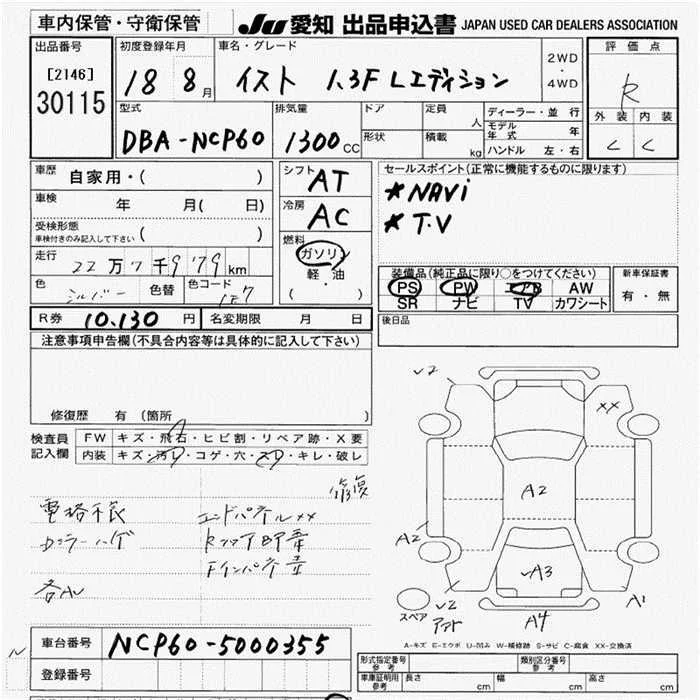 車内保管・守衛保管
JU 愛知 出品申込書 JAPAN USED CAR DEALERS ASSOCIATION
出品番号
[2146]
30115
初度登録年月
18 8月
車名・グレード
イスト 1.3F Lエディション
2WD
・
4WD
評価点
R
外装 内装
C C
型式
DBA-NCP60
排気量
1300 CC
ドア
形状
定員 人
積載 kg
ディーラー・並行
モデル年式 年
ハンドル 左・右
車歴 自家用・( )
車検 年 月( 日)
受検形態 ( )
車検付きのみ記入して下さい
走行 22万7千979km
色 シルバー 色替 色コード 1F7
シフト AT
冷房 AC
燃料
ガソリン
軽・油
( )
セールスポイント(正常に機能するものに限ります)
*NAVi
*T.V
装備品(純正品に限り○をつけてください)
PS PW エアB AW
SR ナビ TV カワシート
新車保証書
有・無
R券 10.130 円 名変期限 月 日
後日品
注意事項申告欄(不具合内容等は具体的に記入して下さい)
修復歴 有 (箇所 )
検査員記入欄
FW キズ・飛石・ヒビ割・リペア跡・X要
内装 キズ・汚レ・コゲ・穴・スレ・キレ・破レ
修復
電格不良 エンドパネルXX
カラーハゲ
各AU
√2
XX
A2
A2
√A3
スペア
√2
A4
A1
A-キズ E-エクボ U-凹み W-補修跡 S-サビ C-腐食 XX-交換済
車台番号 NCP60-5000355
登録番号
形式指定番号 参考
類別区分番号 参考
車庫証明用 参考 長さ cm 幅 cm 高さ cm